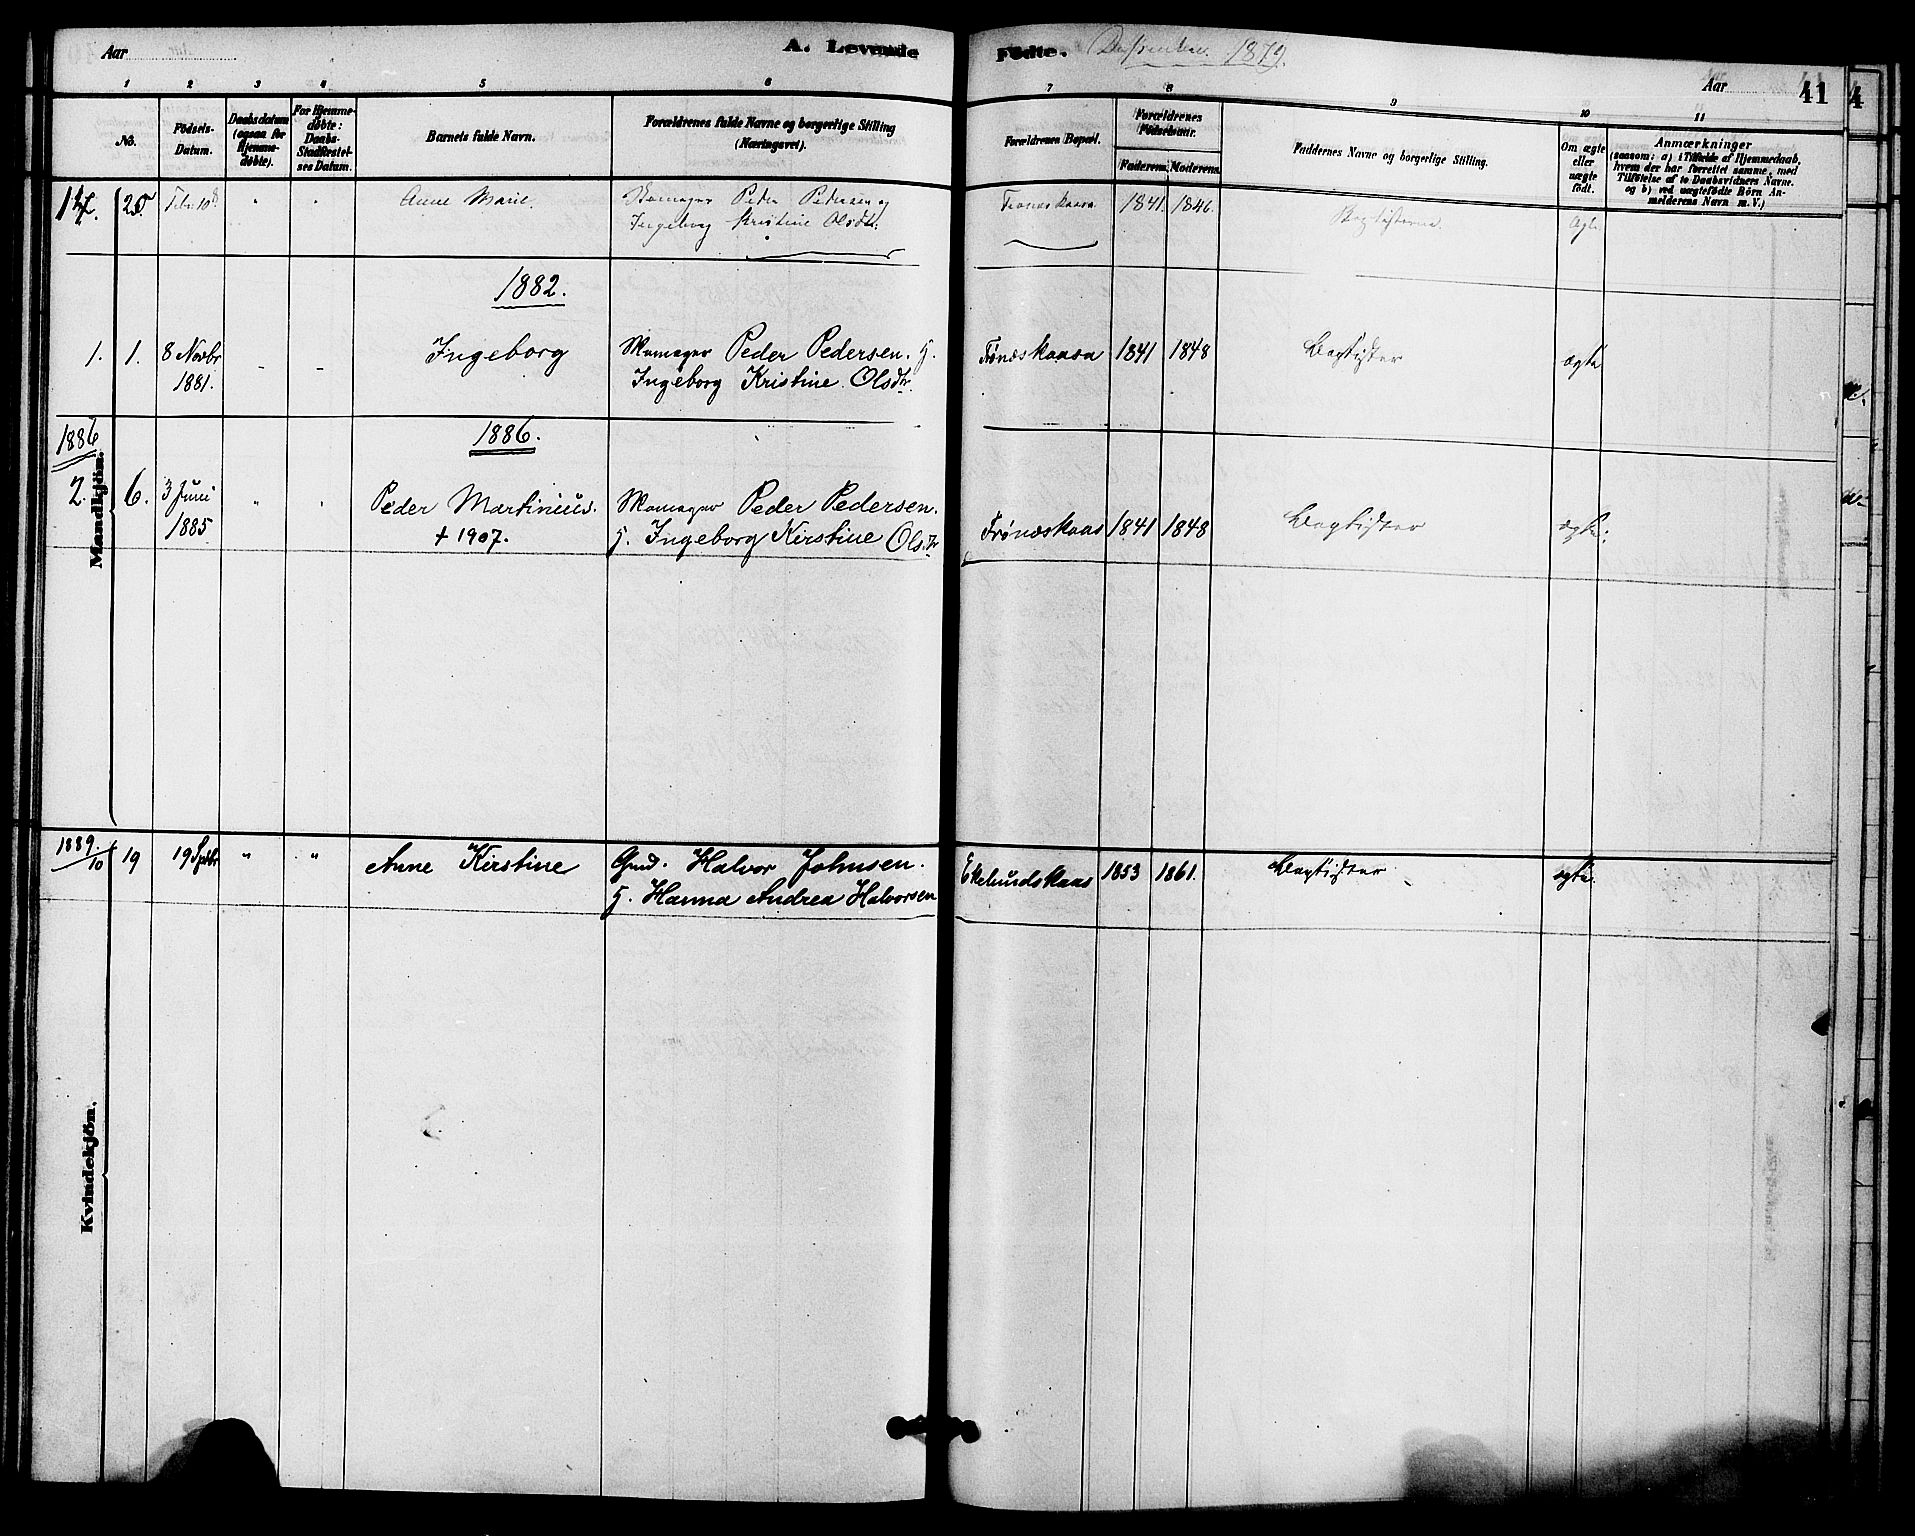 Aar
A. Levende
Fødte.
1879.
Aar
41
4
1 2 3 4 5 6 7 8 9 10 11
No.
Födsels-
Datum.
Daabsdatum
(ogsaa for
Hjemme-
döbte).
For Hjemme-
döbte:
Daabs-
Stadfæstel-
ses Datum.
Barnets fulde Navn.
Forældrenes fulde Navne og borgerlige Stilling
(Næringsvei).
Forældrenes Bopæl.
Forældrenes
Födselsaar.
Faderens.
Moderens.
Faddernes Navne og borgerlige Stilling.
Om ægte
eller
uægte
født.
Anmærkninger
(saasom: a) i Tilfælde af Hjemmedaab,
hvem der har forrettet samme, med
Tilföielse af to Daabsvidners Navne.
og b) ved uægtefödte Börn An-
melderens Navn m. V.)
20. Febr. 10d " " Anne Marie. Peder Pedersen og 1841. 1846. Ægte
Ingeborg Kristine Olsdtr.
1882.
1. 1. 8 Novbr - - Ingeborg Skomager Peder Pedersen. H. Trønæskaasa 1841 1848 Baptister ægte
1881. Ingeborg Kristine Olsdtr.
1886 1886.
2. 6. 3 Juni " " Peder Martinius. Skomager Peder Pedersen. Trønæskaas 1841 1848 Baptister ægte.
1885 + 1907. H. Ingeborg Kirstine Olsdtr
Mandkjön.
1889.
10 19 19 Sptbr " " Anne Kirstine Gmd. Halvor Johnsen. Ekelundskaas 1853 1861. Baptister ægte.
H. Hanna Andrea Halvorsen
Kvindekjön.